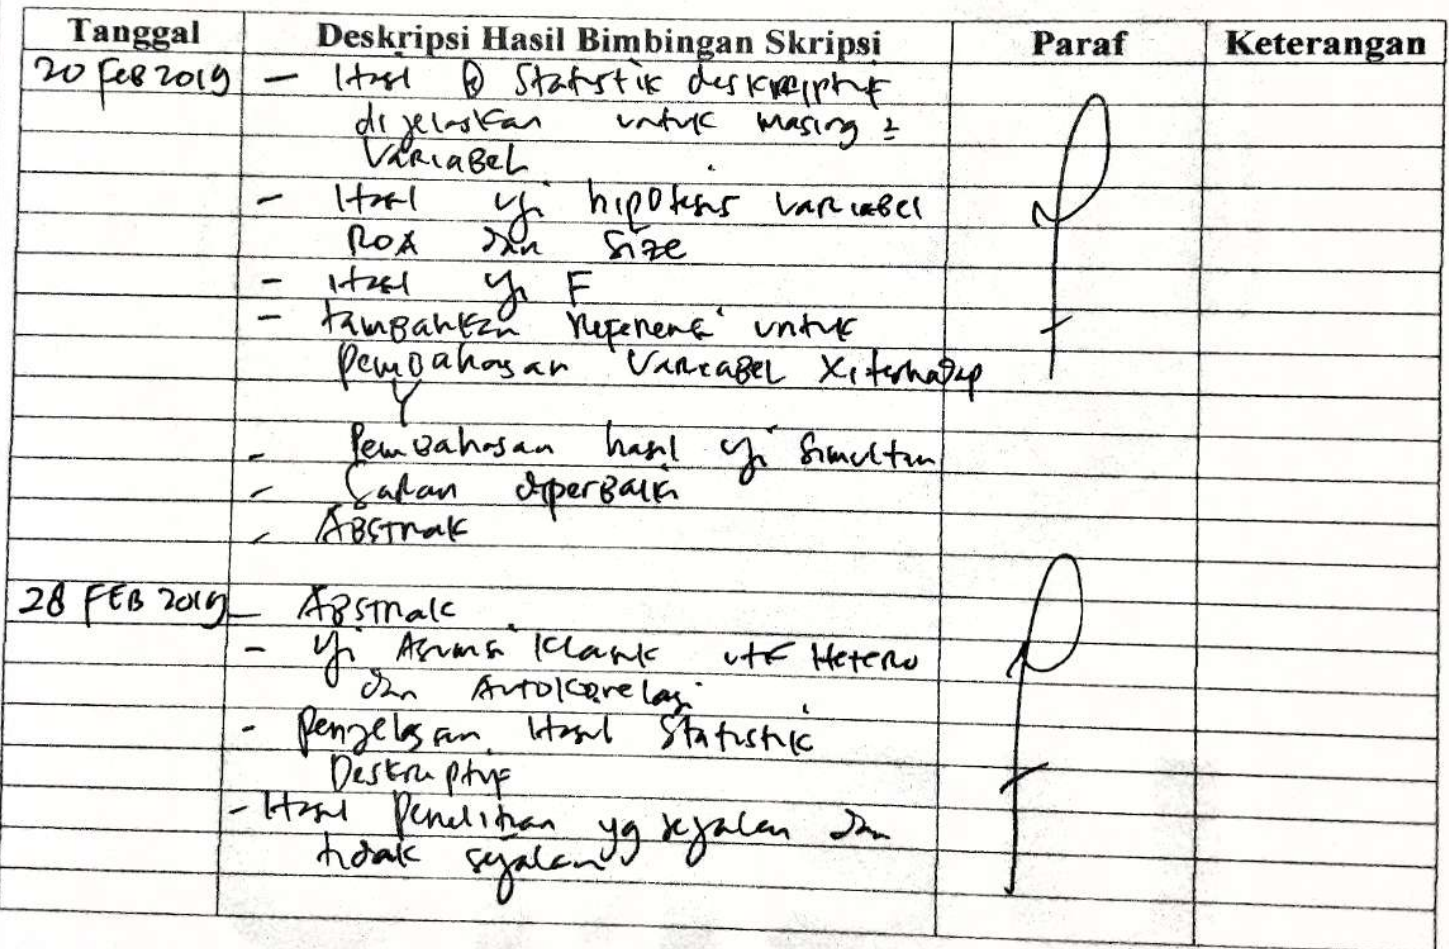 Tanggal Deskripsi Hasil Bimbingan Skripsi Paraf Keterangan
20 Feb 2019 - Hasil Statistik deskriptif
dijelaskan untuk masing2
Variabel
- Hasil uji hipotesis variabel
ROA dan Size
- Hasil uji F
- tambahkan referensi untuk
pembahasan Variabel X1 terhadap
Y
- Pembahasan hasil uji Simultan
- Saran diperbaiki
- Abstrak
28 FEB 2019 - Abstrak
- Uji Asumsi Klasik utk Hetero
dan Autokorelasi
- Penjelasan Hasil Statistik
Deskriptif
- Hasil Penelitian yg sejalan dan
tidak sejalan